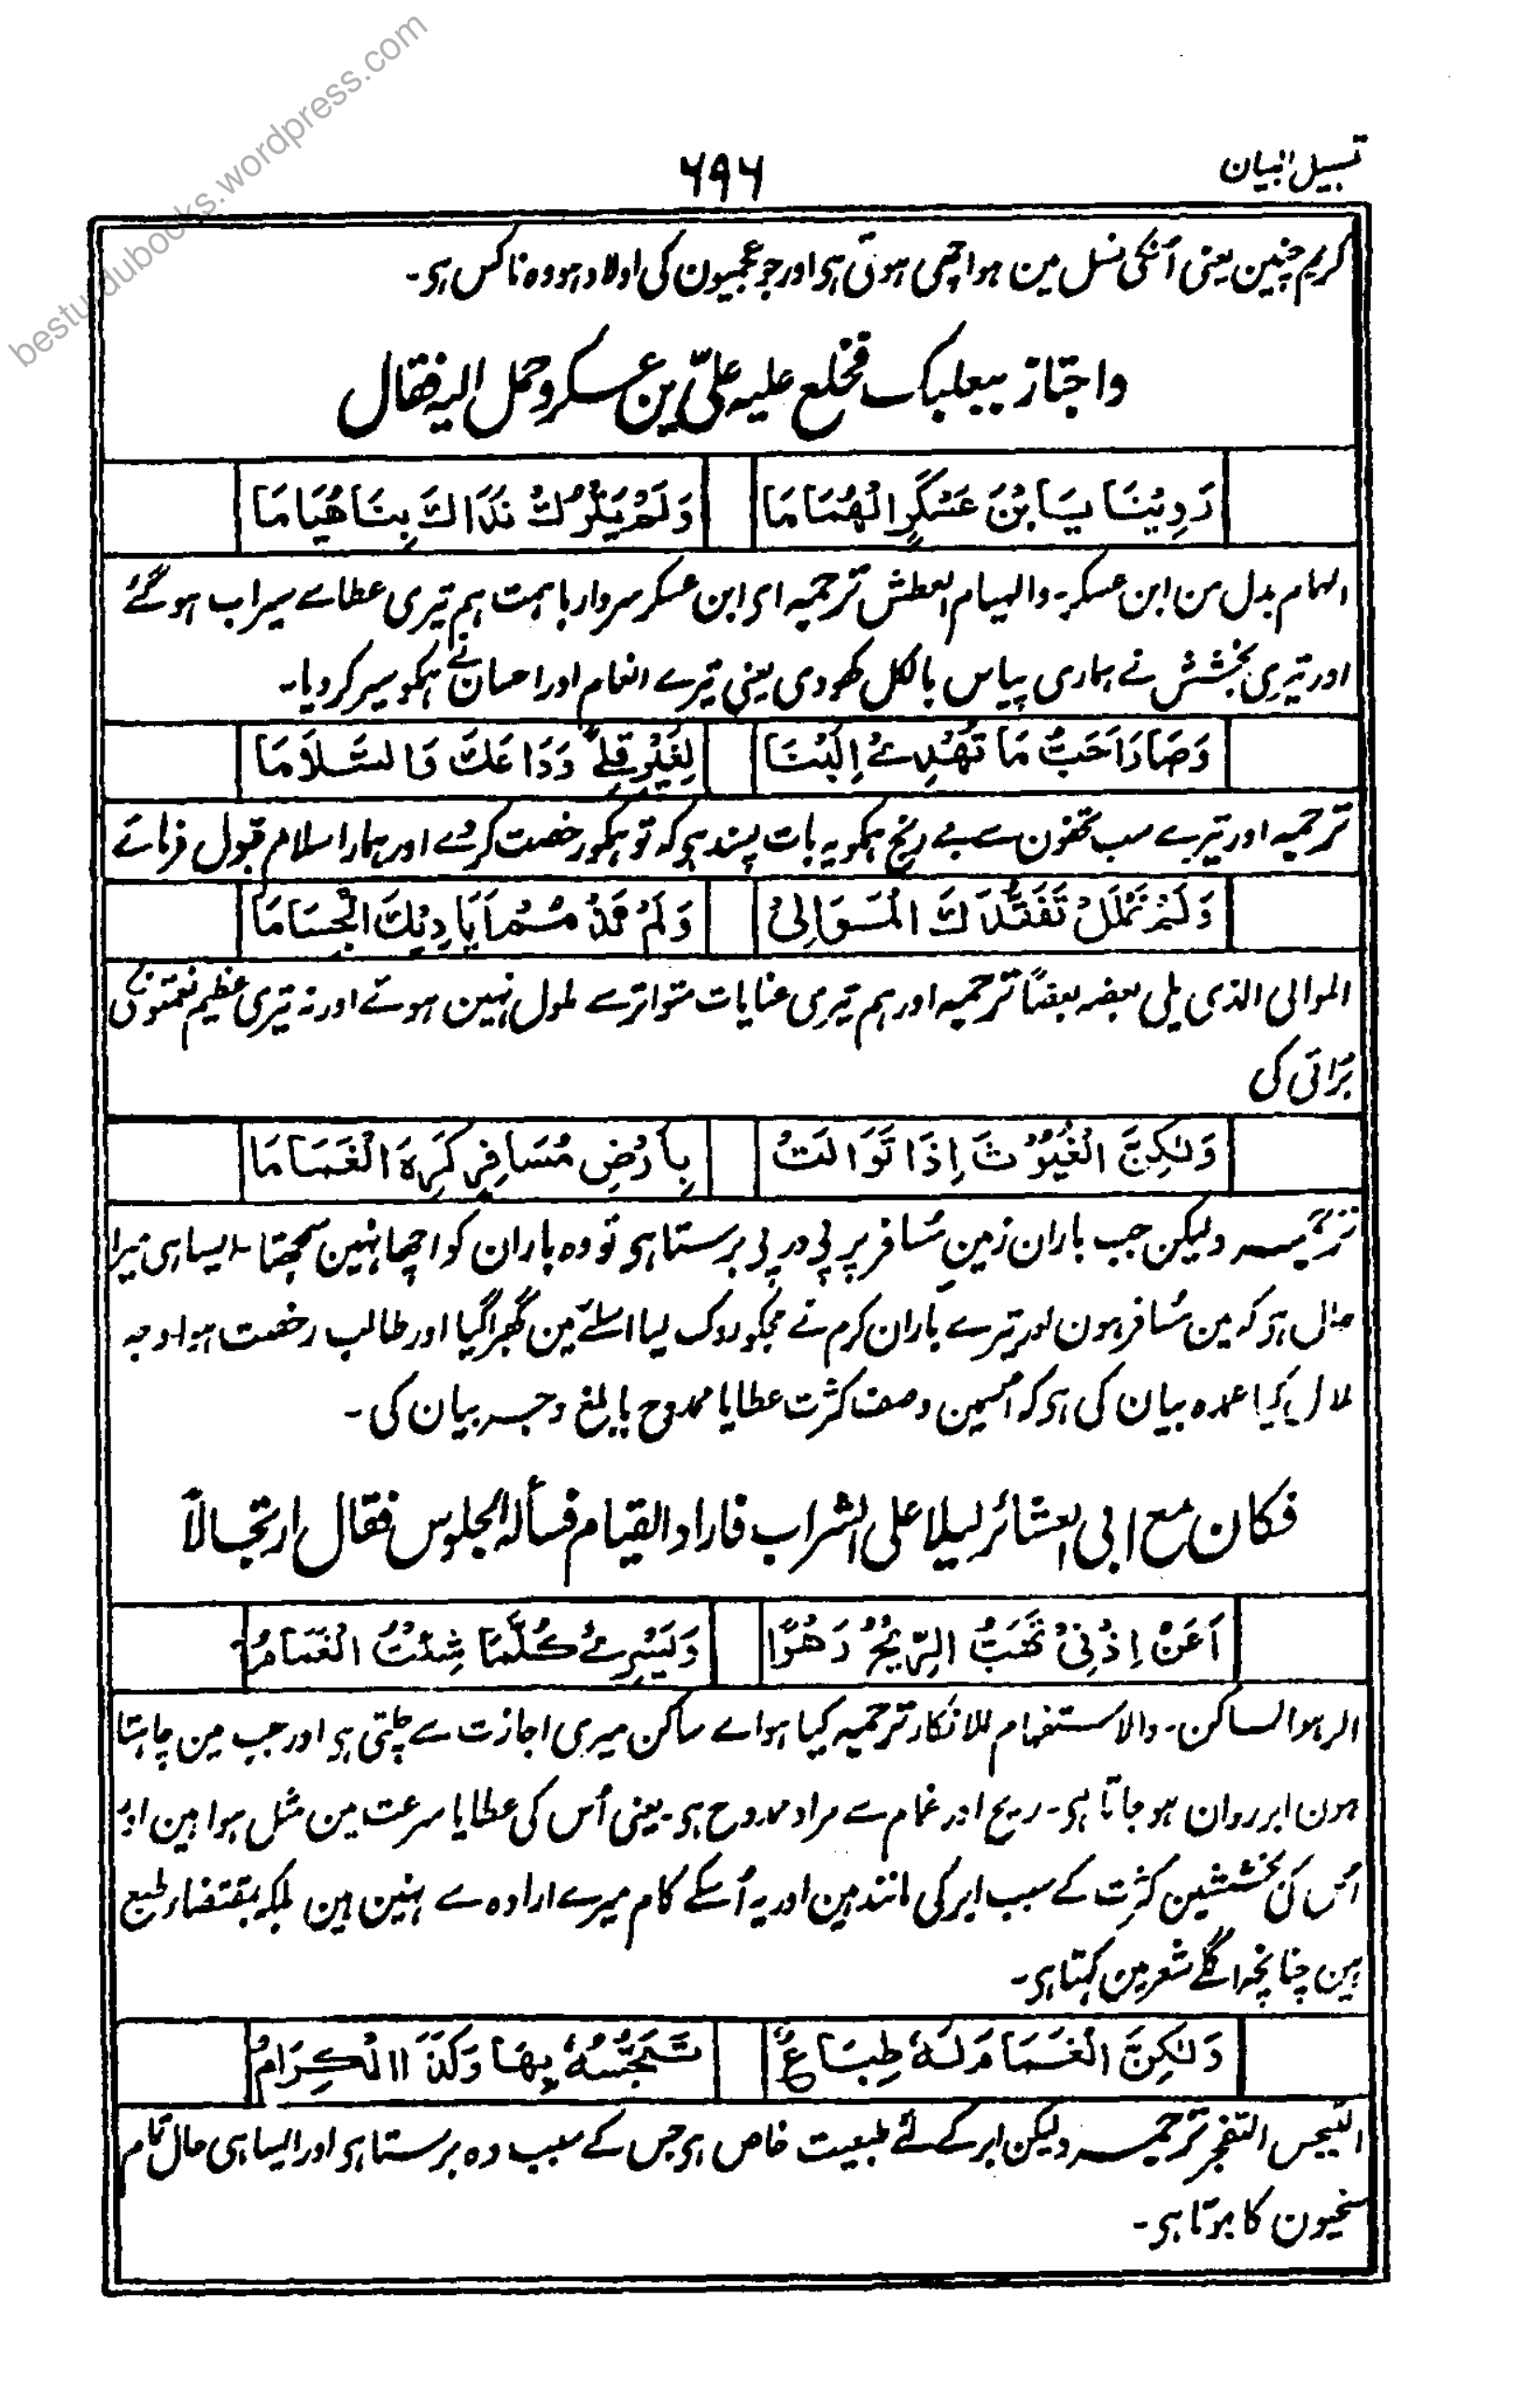 bestudubooks.wordpress.com
تسہیل البیان
۶۹۶
کریم چنین یعنی اُنکی نسل مین ہوا چھی ہوتی ہی اور جو عجمیون کی اولاد ہو وہ ناکس ہی۔
واجتاز ببعلبک فخلع علیہ علیّ بن عسکر وحمل الیہ فقال
رَوِيْنَا يَا بْنَ عَسْكَرٍ الْهُمَامَا
وَلَمْ يَتْرُكْ نَدَاكَ بِنَا هُيَامَا
الہمام بدل من ابن عسکر۔ والہیام العطش ترجمہ ای ابن عسکر سردار با ہمت ہم تیری عطا سے سیراب ہو گئے
اور تیری بخشش نے ہماری پیاس بالکل کھودی یعنی تیرے انعام اور احسان نے ہمکو سیر کر دیا۔
وَصَارَ اَحَبُّ مَا تُهْدِيْ اِلَيْنَا
لِغَيْرِ قِلًى وَدَاعَكَ وَالسَّلَامَا
ترجمہ اور تیرے سب تحفون سے بے رنج ہمکو یہ بات پسند ہی کہ تو ہمکو رخصت کردے اور ہمارا سلام قبول فرمائے
وَلَمْ نَمْلَلْ تَفَقُّدَكَ الْمَوَالِيْ
وَلَمْ نَذْمُمْ اَيَادِيْكَ الْجِسَامَا
الموالی الذی یلی بعضہ بعضًا ترجمہ اور ہم تیری عنایات متواتر سے ملول نہین ہوئے اور نہ تیری عظیم نعمتونکی
برائی کی
وَلٰكِنَّ الْغُيُوْثَ اِذَا تَوَالَتْ
بِاَرْضِ مُسَافِرٍ كَرِهَ الْغَمَامَا
ترجمہ ولیکن جب باران زمینِ مُسافر پر پی در پی برستا ہی تو وہ باران کو اچھا نہین سمجھتا۔ ایسا ہی میرا
حال ہی کہ مین مُسافر ہون اور تیرے باران کرم نے مجکو روک لیا اسلئے مین گھبرا گیا اور طالب رخصت ہوا وجہ
ملال کیا عمدہ بیان کی ہی کہ اسمین وصف کثرت عطایا ممدوح بابلغ وجہ بیان کی۔
فکان مع ابی العشائر لیلا علی الشراب فاراد القیام فسألہ الجلوس فقال ارتجالاً
اَعَنْ اِذْنِيْ تَهُبُّ الرِّيْحُ رَهْوًا
وَيَسْرِيْ كُلَّمَا شِئْتُ الْغَمَامُ
الرہو الساکن۔ والاستفہام للانکار ترجمہ کیا ہواے ساکن میری اجازت سے چلتی ہی اور جب مین چاہتا
ہون ابر روان ہو جاتا ہی۔ ریح اور غمام سے مراد ممدوح ہی۔ یعنی اُس کی عطایا سرعت مین مثل ہوا ہین اور
اُس کی بخششین کثرت کے سبب ابر کی مانند ہین اور یہ اُسکے کام میرے ارادہ سے نہین ہین بلکہ بمقتضاء طبع
ہین چنانچہ اگلے شعر مین کہتا ہی۔
وَلٰكِنَّ الْغَمَامَ لَهٗ طِبَاعٌ
تَبَجُّسُهٗ بِهَا وَكَذَا الْكِرَامُ
التبجس التفجر ترجمہ ولیکن ابر کے لئے طبیعت خاص ہی جس کے سبب وہ برستا ہی اور ایسا ہی حال تمام
سخیون کا ہوتا ہی۔